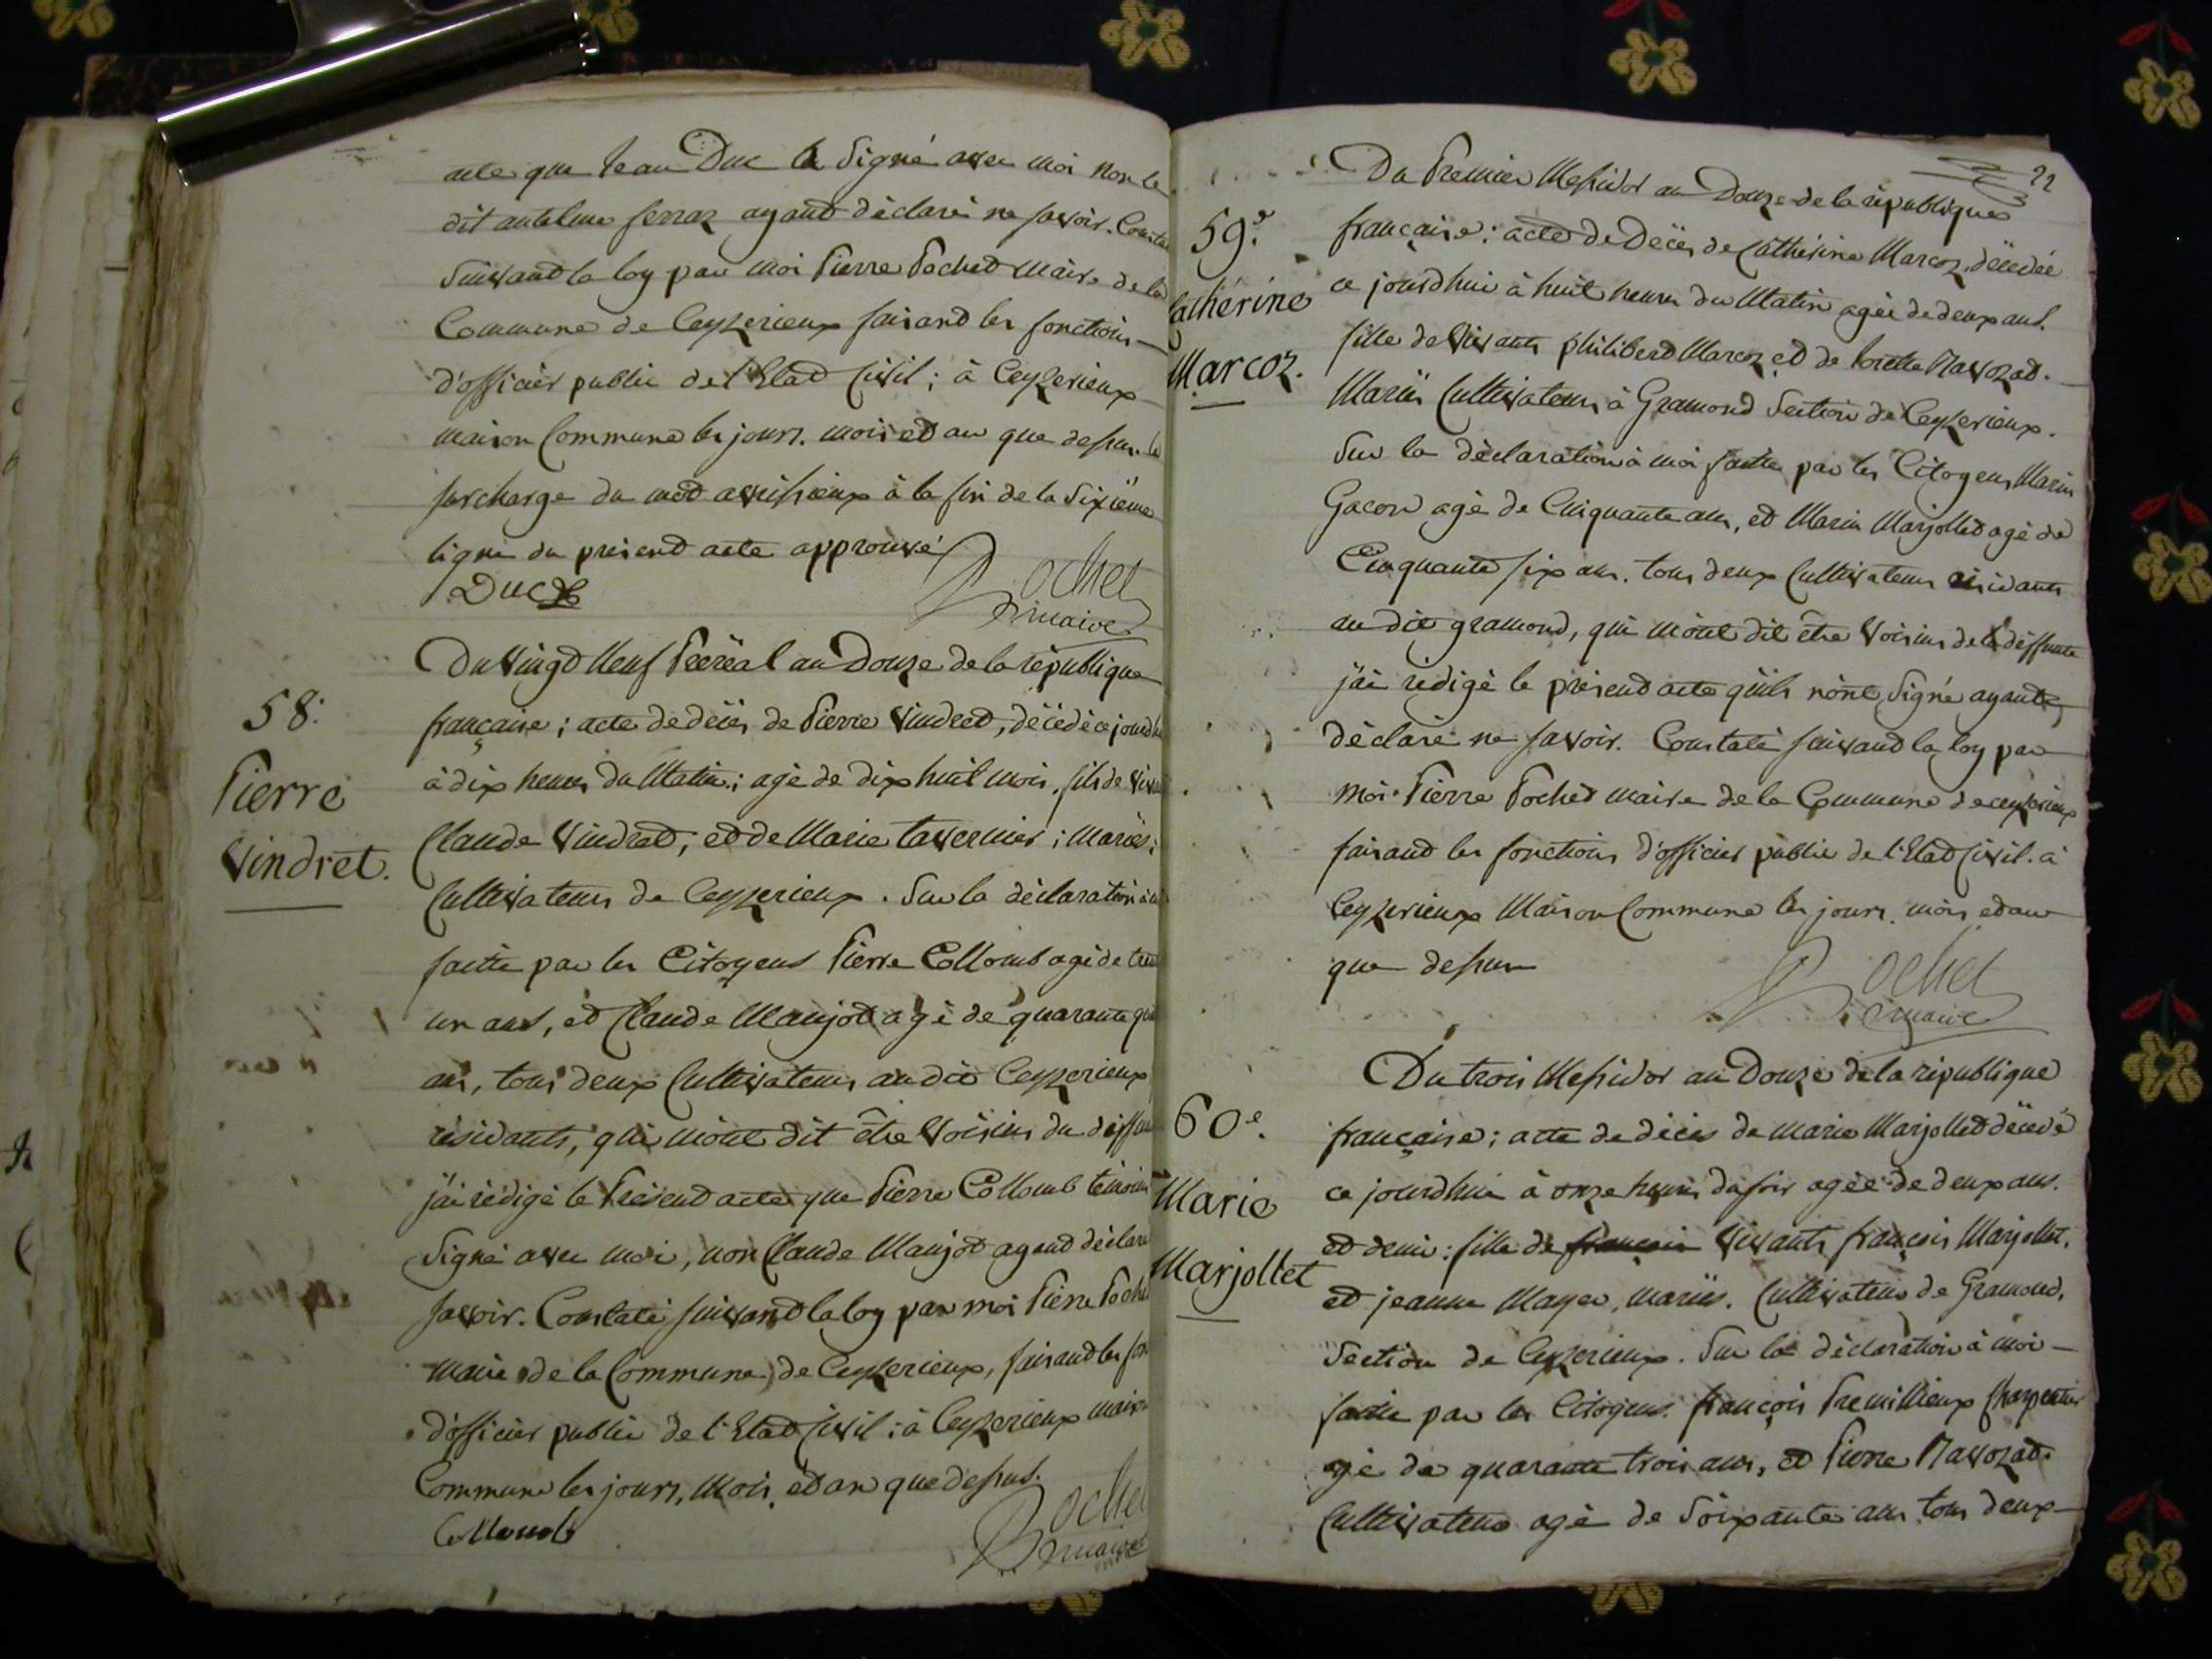 acte que Jean Duc a signé avec moi non le
dit antelme ferraz ayant déclaré ne savoir. Consta
suivand la loy par moi Pierre Pochet maire de la
Commune de Ceyzerieux faisand les fonctions
d'officier public de l'Etad Civil; à Ceyzerieux
maison Commune les jours. mois et an que dessus. la
surcharge du mot à la fin de la sixième
ligne du présend acte approuvé
Duc
Pochet
maire
58.
Pierre
Vindret.
Du vingd neuf Preréal an Douze de la république
française; acte de décès de Pierre Vindret, décédé ce jourdhu
à dix heures du Matin; agé de dix huit mois. fils de viva
Claude Vindret; et de Marie tavernier; mariés;
Cultivateurs de Ceyzerieux. Sur la déclaration à
faitte par les Citoyens Pierre Collomb agé de tren
un ans, et Claude Manjot agé de quarante qu
ans, tous deux Cultivateurs audit Ceyzerieux
résidants, qui m'ont dit être voisins du deffun
j'ai rédigé le Présend acte que Pierre Collomb témoin
Signé avec moi, non Claude Manjot ayand déclaré
savoir. Constaté suivand la loy par moi Pierre Poche
maire de la Commune de Ceyzerieux, faisand les fon
d'officier public de l'Etad Civil; à Ceyzerieux maison
Commune les jours, mois, et an que dessus.
Collomb
Pochet
maire
22
59e.
Cathérine
Marcoz.
Du Premier Messidor an Douze de la république
française: acte de Décès de Cathérine Marcoz, décédée
ce jourdhui à huit heures du Matin agée de deux ans.
fille de vivants philiberd Marcoz et de Navozad.
Mariés Cultivateurs à Gramond Section de Ceyzerieux.
Sur la déclaration à moi faitte par les Citoyens Marin
Gacon agé de Cinquante ans, et Marin Marjollet agé de
Cinquante six ans. tous deux Cultivateurs résidants
au dit gramond, qui m'ont dit être Voisins de la deffunte
j'ai rédigé le présend acte qu'ils n'ont Signé ayants
déclaré ne savoir. Constaté suivand la loy par
moi Pierre Pochet maire de la Commune de ceyzerieux
faisand les fonctions d'officier public de l'Etad Civil. à
Ceyzerieux Maison Commune les jours. mois et an
que dessus
Pochet
maire
60e.
Marie
Marjollet
Du trois Messidor an Douze de la république
française; acte de décès de marie Marjollet décédé
ce jourdhui à onze heures du soir agée de deux ans.
et demi: fille de françois vivants françois Marjollet.
et jeanne Mayer, mariés. Cultivateurs de Gramond,
Section de Ceyzerieux. Sur la déclaration à moi
faitte par les Citoyens. françois Premillieux Charpentier
agé de quarante trois ans, et Pierre Navozad.
Cultivateur agé de Soixante ans tous deux